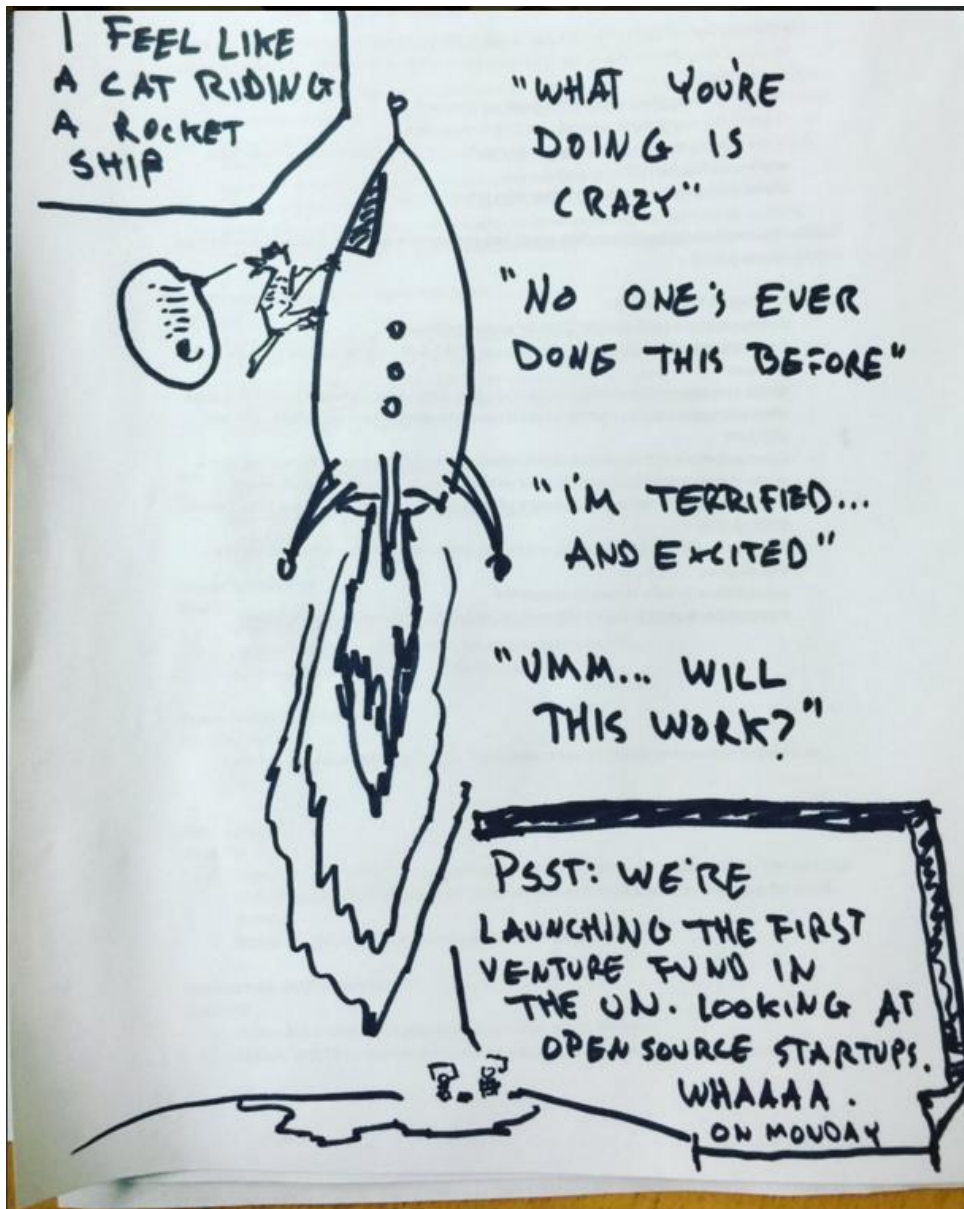 I FEEL LIKE
A CAT RIDING
A ROCKET
SHIP
"WHAT YOU'RE
DOING IS
CRAZY"
"NO ONE'S EVER
DONE THIS BEFORE"
"I'M TERRIFIED...
AND EXCITED"
"UMM... WILL
THIS WORK?"
PSST: WE'RE
LAUNCHING THE FIRST
VENTURE FUND IN
THE UN. LOOKING AT
OPEN SOURCE STARTUPS.
WHAAAA.
ON MONDAY